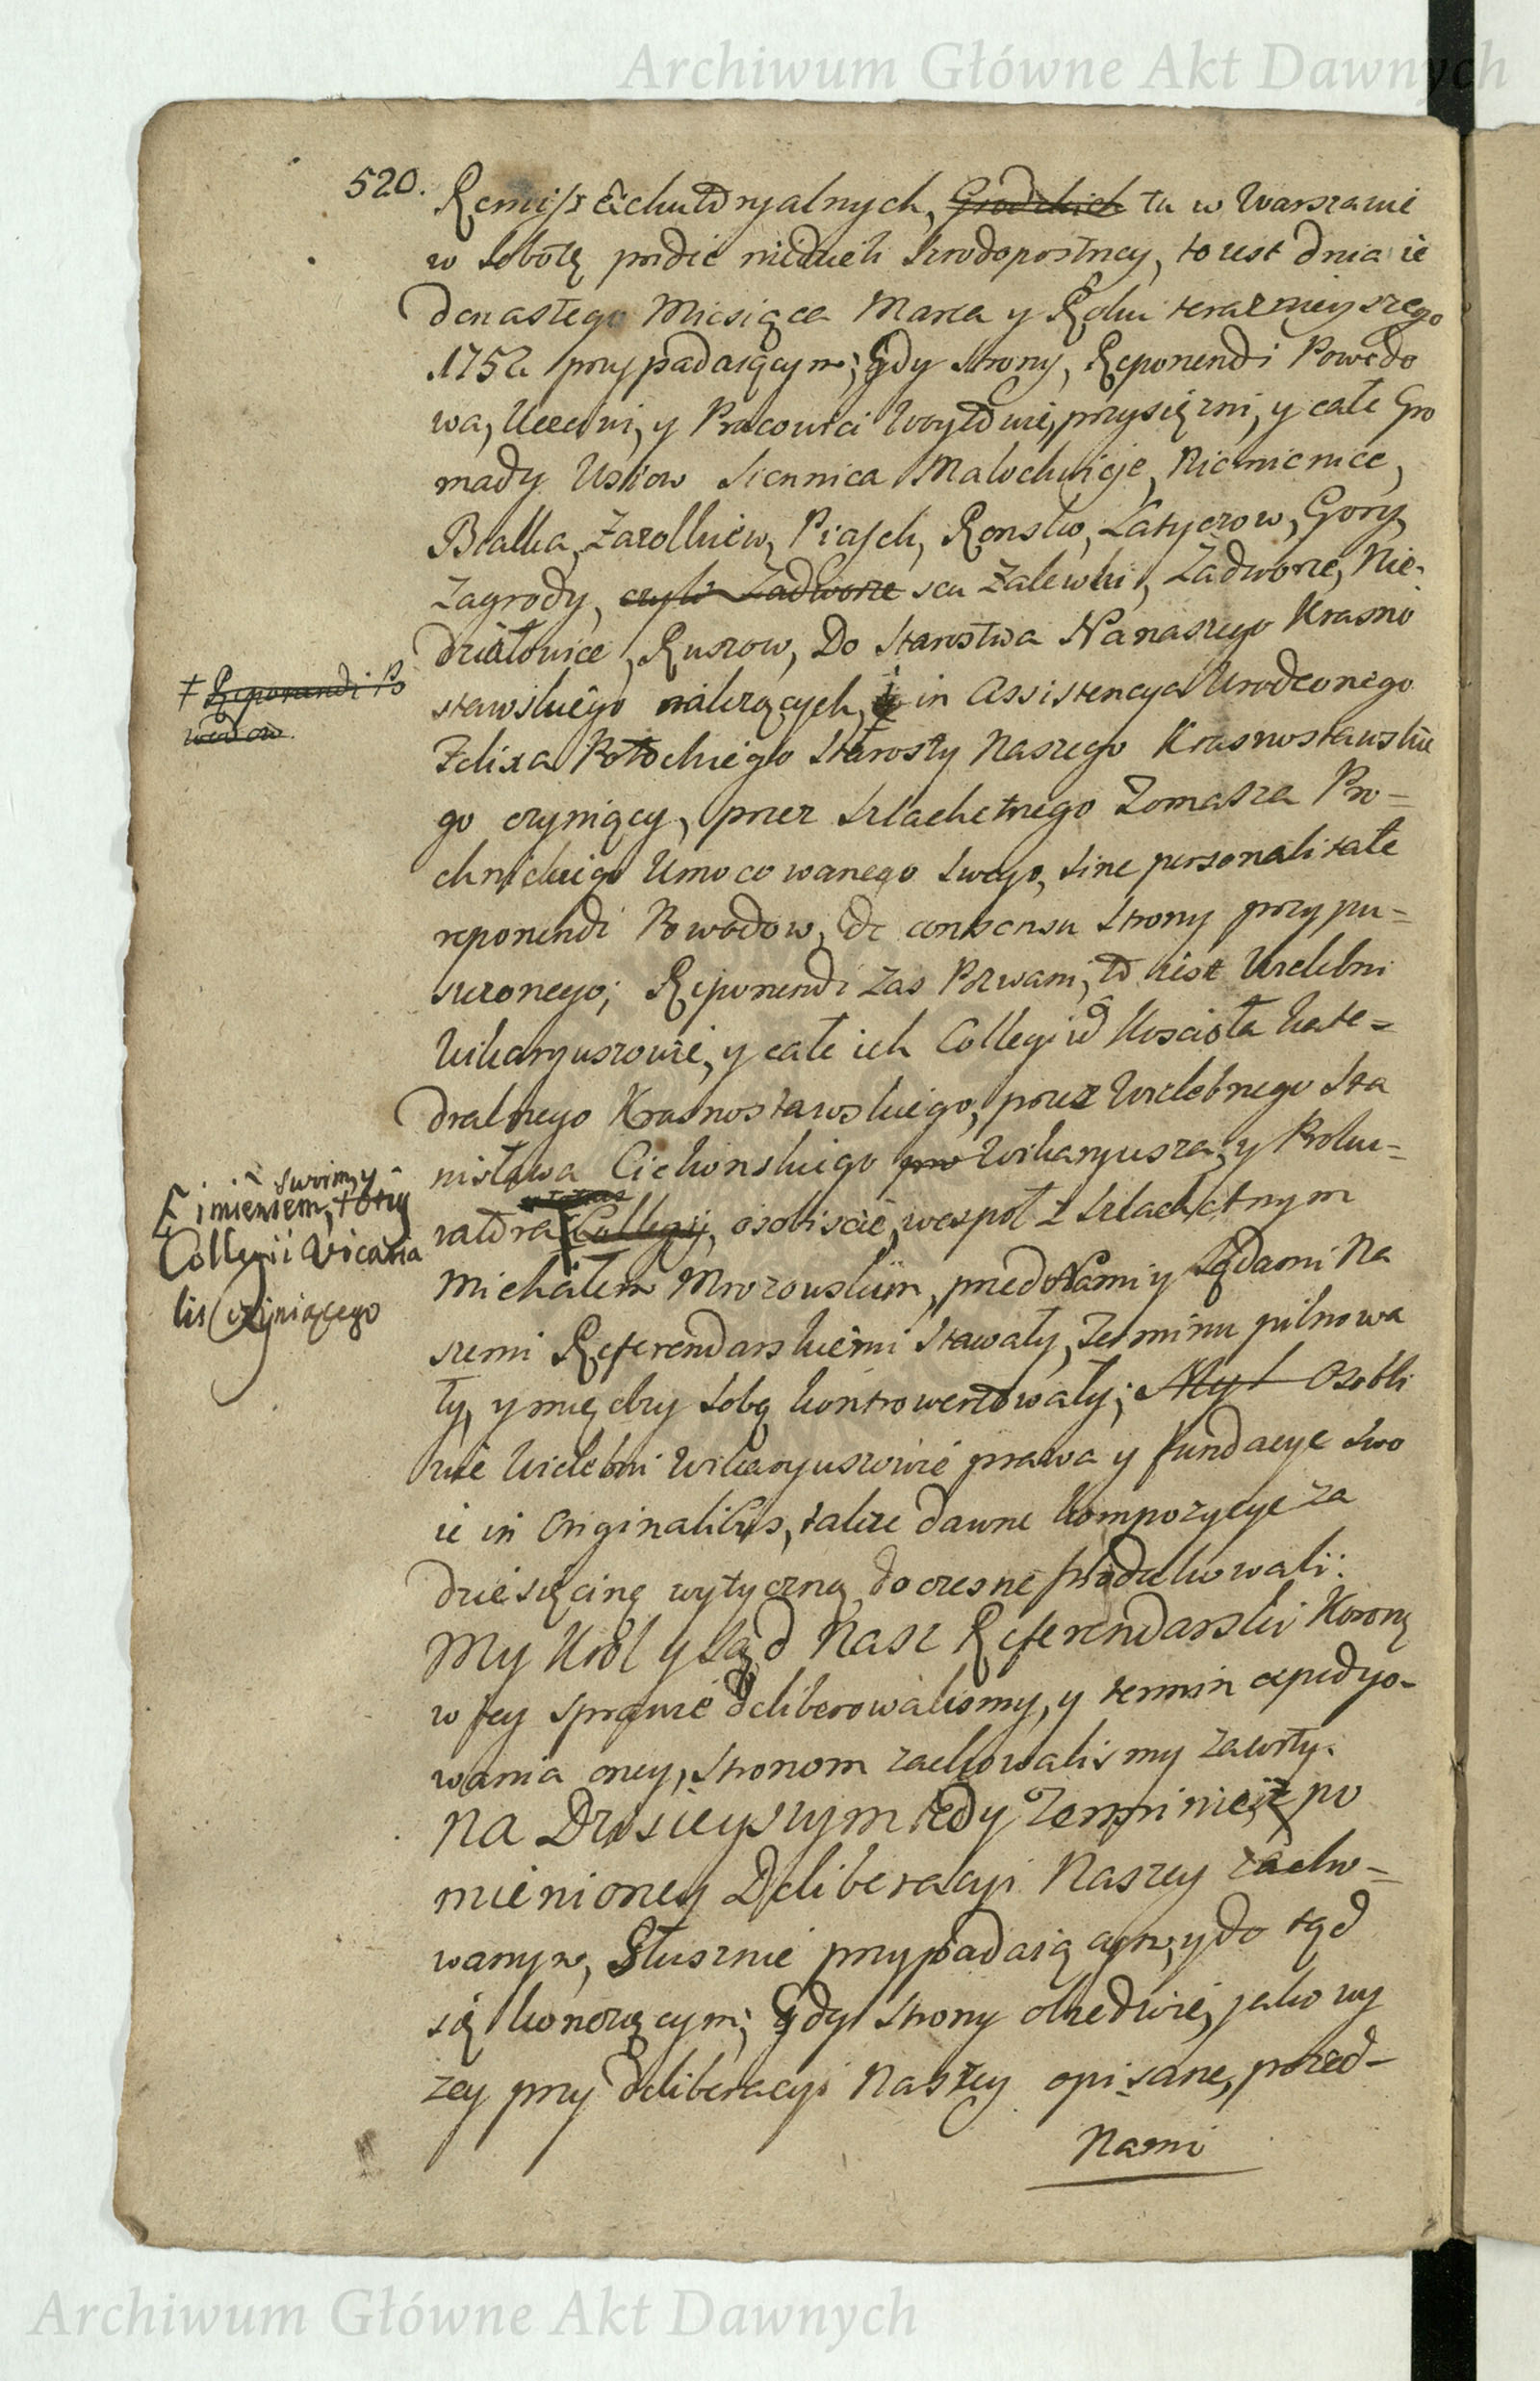 Archiwum Główne Akt Dawnych
520.
Remiss Echułdryalnych, Grodzkich tu w Warszawie
w Sobotę przedie niedzieli Srzodopostney, to iest dnia ie
denastego Miesiąca Marca y Roku teraznieyszego
1752 przypadaiącym; Gdy Strony, Reponendi Powodo
wa, Uczciwi, y Pracowici Woytowie, przysięzni, y całe Gro
mady Wsiow Siennica Malochwieje, Niemienice,
Bialka, Zarolkiew, Piaski, Ronsko, Latyczow, Gory,
Zagrody, czyli Zadworze seu Zalewki, Zadworze, Nie-
działowice, Ruszow, Do Starostwa Nanaszego Krasno
stawskiego należących, in Assistencya Urodzonego
‡ Reponendi Po
wodow.
Felixa Potockiego Starosty Naszego Krasnostawskie
go czyniący, przez Szlachetnego Tomasza Pro=
chnickiego Umocowanego Swego, Sine personalitate
reponendi Powodow, de consensu Strony przypu=
szczonego; Reponendi Zas Pozwani, to iest Wielebni
Wikaryuszowie, y całe ich Collegiu Kosciola Kate=
dralnego Krasnostawskiego, przez Wielebnego Sta
nisława Cichonskiego Wikaryusza, y Proku=
ratora Collegij, osobiscie, wespoł z Szlachetnym
swoim, y
imieniem, tory
Collegii Vicaria
lis czyniącego
Michałem Mrozowskim, przed Nami y Sądami Na
szemi Referendarskiemi Stawały, Terminu pilnowa
ły, y między Sobą kontrowertowały; Osobli
wie Wielebni Wikaryuszowie prawa y fundacye Swo
ie in Originalibus, takze dawne kompozycye za
dziesięcinę wytyczną doczesne produkowali:
My Krol y Sąd Nasz Referendarski Korony
w tey Sprawie deliberowalismy, y termin expedyo-
wania oney, Stronom zachowalismy zawity.
Na Dzisieyszym tedy Terminie, z po
mienioney Deliberacyi Naszey zacho=
wanym, Słusznie przypadaiącym, y do tąd
się kończącym; Gdy Strony obiedwie, jako wy
zey przy deliberacyi Naszey opisane, przed-
Nami
Archiwum Główne Akt Dawnych